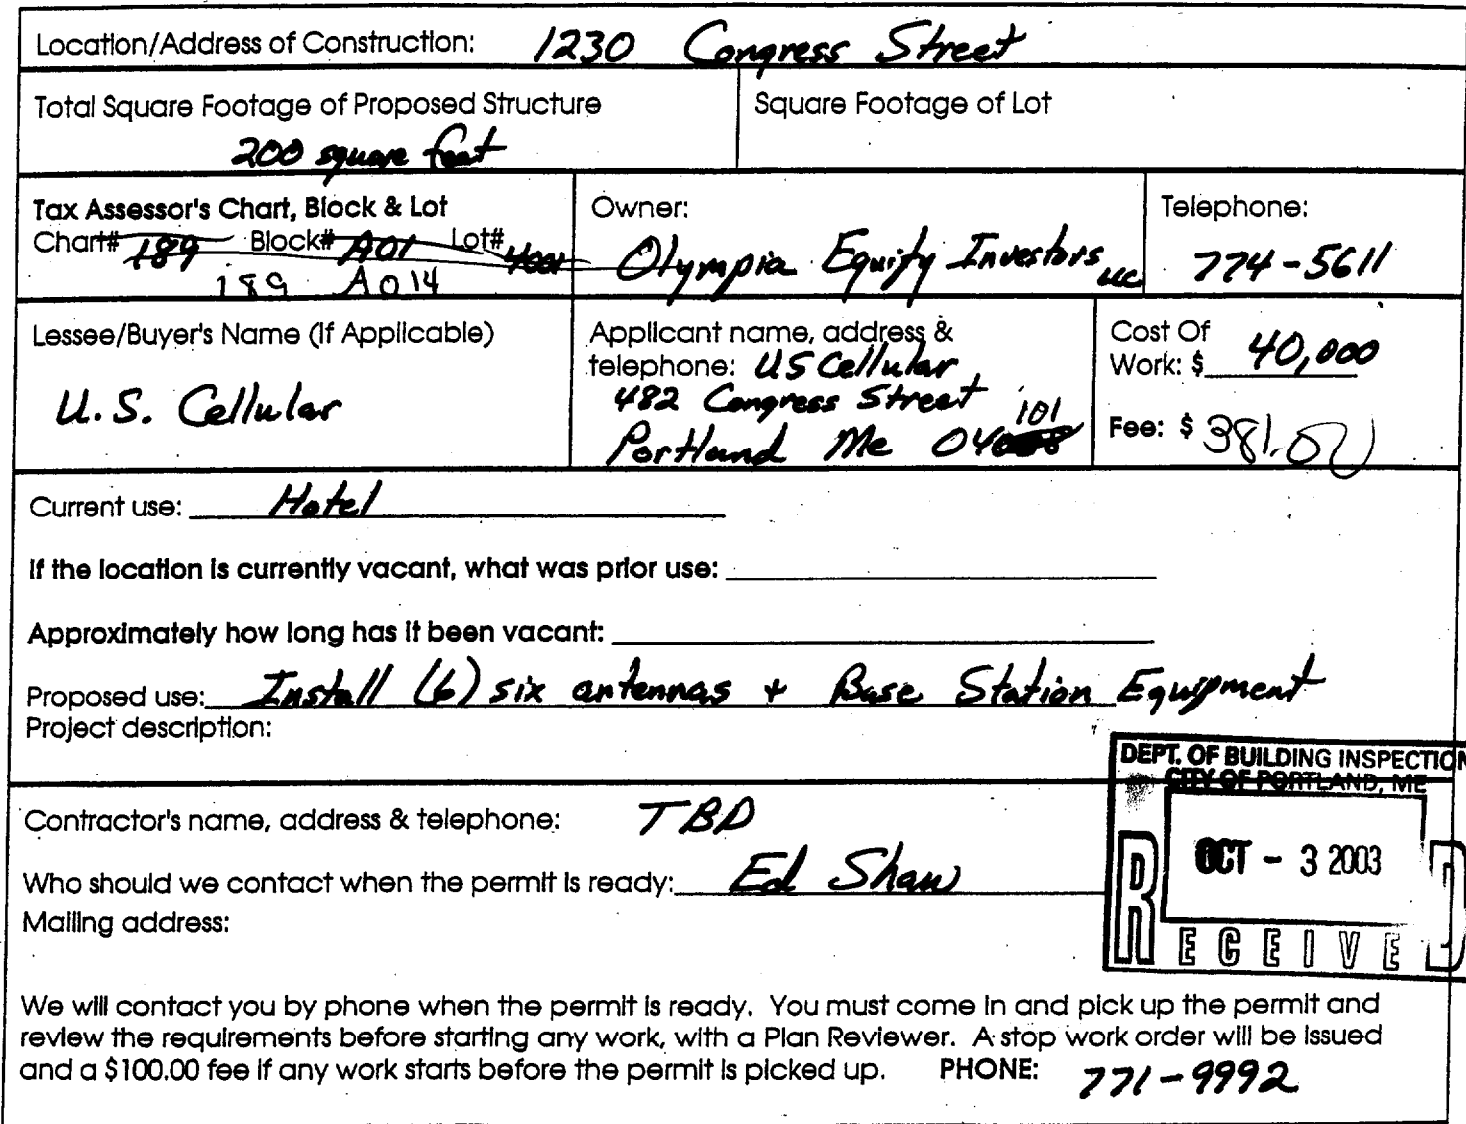 Location/Address of Construction: 1230 Congress Street
Total Square Footage of Proposed Structure
200 square feet
Square Footage of Lot
Tax Assessor's Chart, Block & Lot
Chart# 189 Block# A01 Lot# 4001
189 A014
Owner:
Olympia Equity Investors LLC
Telephone:
774-5611
Lessee/Buyer's Name (If Applicable)
U.S. Cellular
Applicant name, address &
telephone: US Cellular
482 Congress Street
Portland Me 04101
Cost Of
Work: $ 40,000
Fee: $ 381.00
Current use: Hotel
If the location is currently vacant, what was prior use:
Approximately how long has it been vacant:
Proposed use: Install (6) six antennas + Base Station Equipment
Project description:
DEPT. OF BUILDING INSPECTION
CITY OF PORTLAND, ME
OCT - 3 2003
RECEIVED
Contractor's name, address & telephone: TBD
Who should we contact when the permit is ready: Ed Shaw
Mailing address:
We will contact you by phone when the permit is ready. You must come in and pick up the permit and
review the requirements before starting any work, with a Plan Reviewer. A stop work order will be issued
and a $100.00 fee if any work starts before the permit is picked up. PHONE: 771-9992